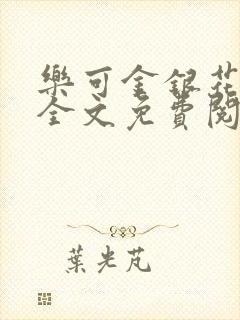 樂可金銀花
全文免費閱
葉光芃